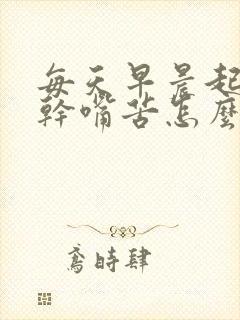 每天早晨起
幹嘴苦怎麼
鳶時肆